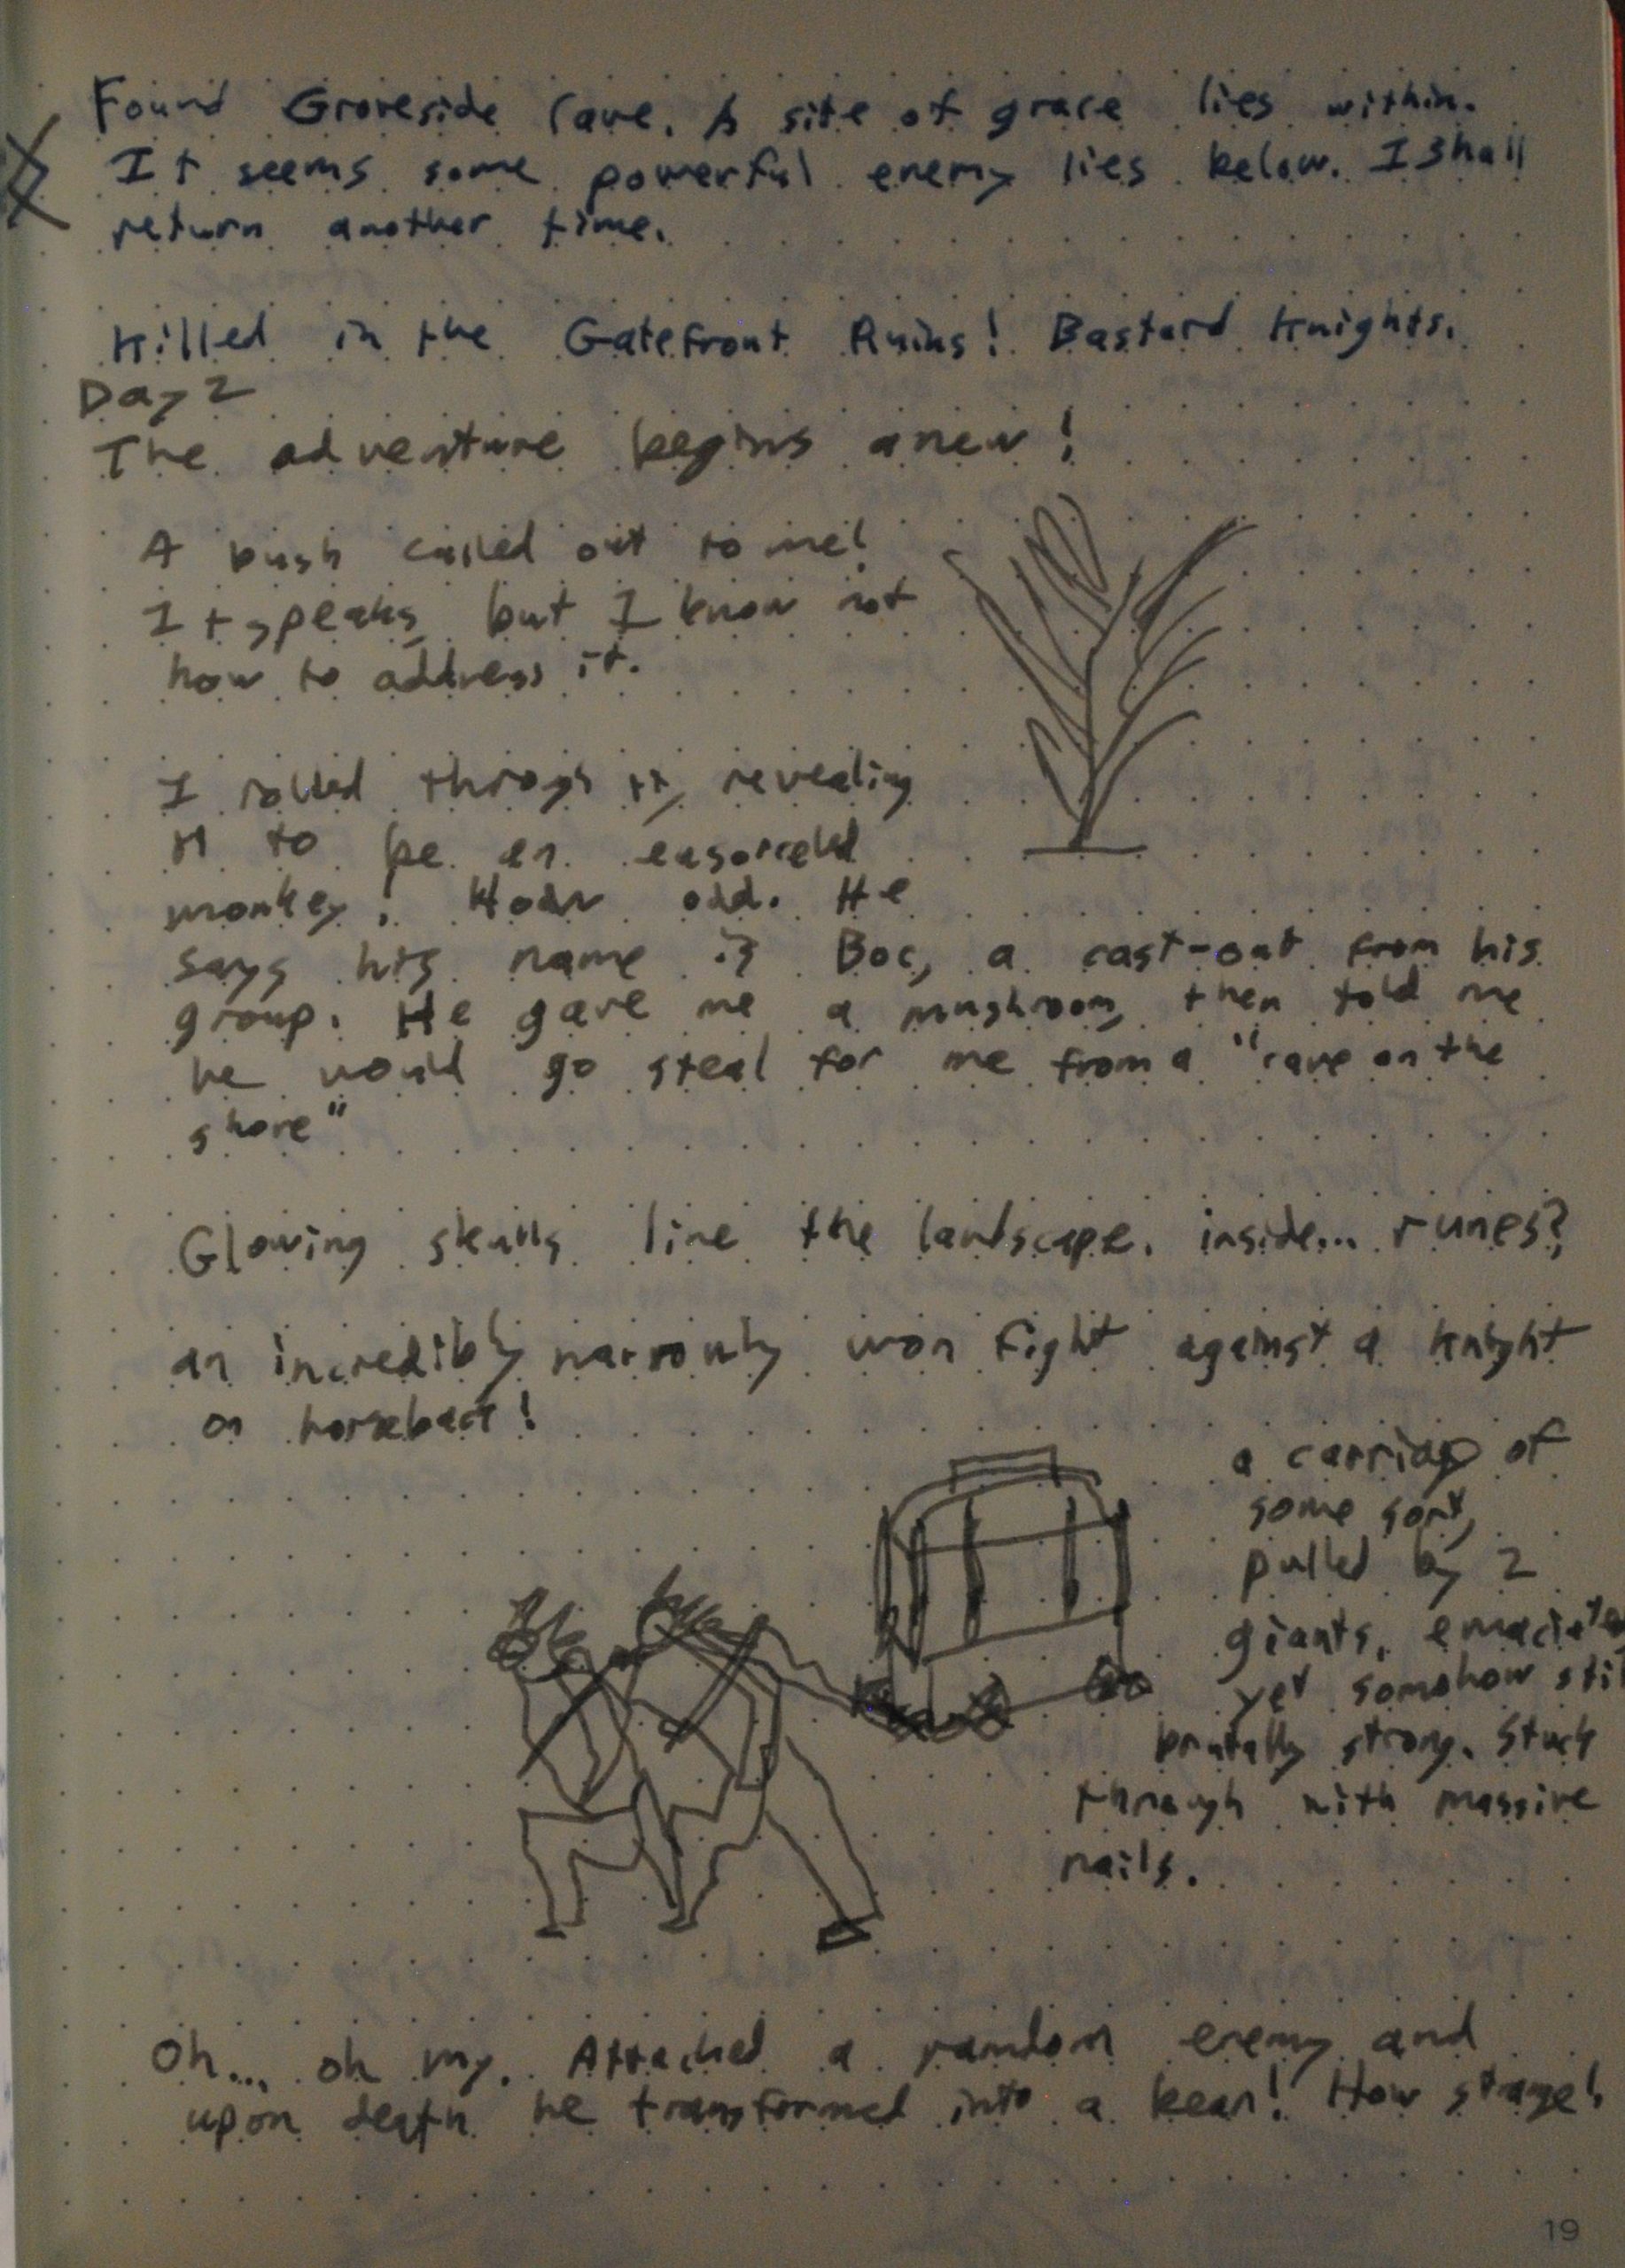 Found Groveside Cave. A site of grace lies within.
It seems some powerful enemy lies below. I shall
return another time.
Killed in the Gatefront Ruins! Bastard Knights.
Day 2
The adventure begins anew!
A bush called out to me!
It speaks, but I know not
how to address it.
I rolled through it, revealing
it to be an ensorceled
monkey! How odd. He
says his name is Boc, a cast-out from his
group. He gave me a mushroom, then told me
he would go steal for me from a "cave on the
shore"
Glowing skulls line the landscape. inside... runes?
an incredibly narrowly won fight against a knight
on horseback!
a carriage of
some sort,
pulled by 2
giants, emaciated,
yet somehow stil
brutally strong. Stuck
through with massive
nails.
Oh... oh my. Attacked a random enemy and
upon death he transformed into a bear! How strange!
19